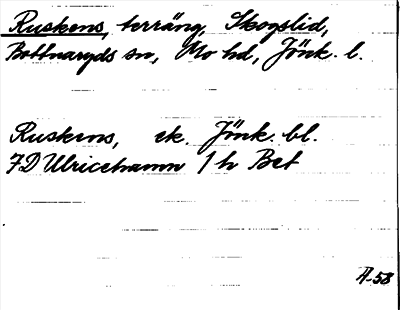 Ruskens, terräng, Skogslid,
Bottnaryds sn, Mo hd, Jönk. l.
Ruskens, ek. Jönk. bl.
7D Ulricehamn 1 h Bet
A-58